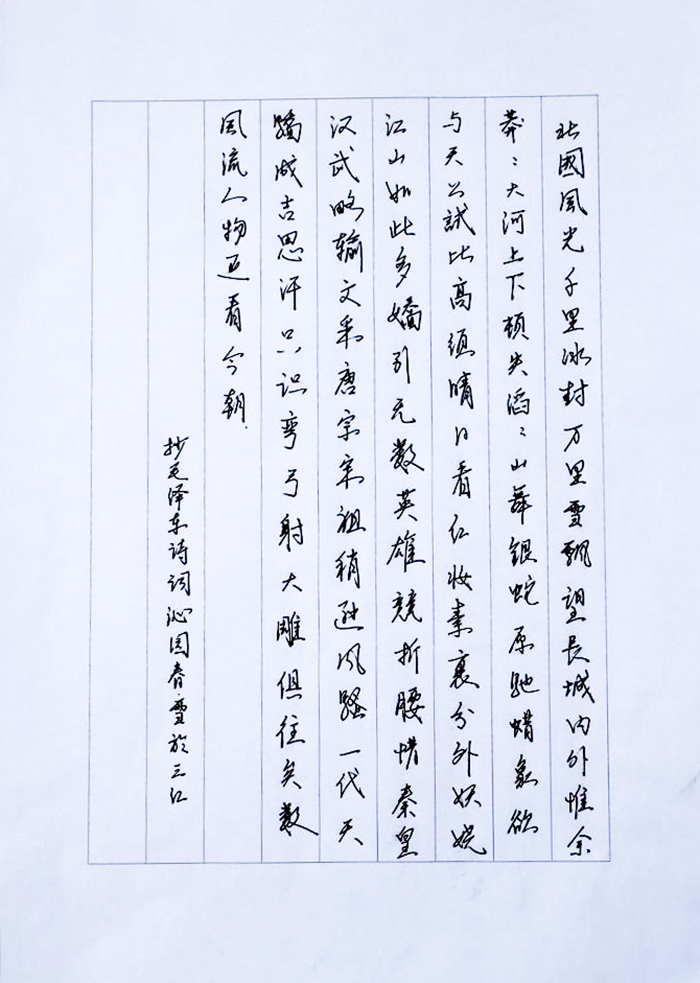 北國風光千里冰封万里雪飘望長城内外惟余
莽〻大河上下顿失滔〻山舞银蛇原驰蜡象欲
与天公試比高须晴日看红妆素裹分外妖娆
江山如此多嬌引无数英雄競折腰惜秦皇
汉武略输文采唐宗宋祖稍逊风騷一代天
骄成吉思汗只识弯弓射大雕俱往矣数
風流人物还看今朝.
抄毛泽东诗词沁园春雪於三江